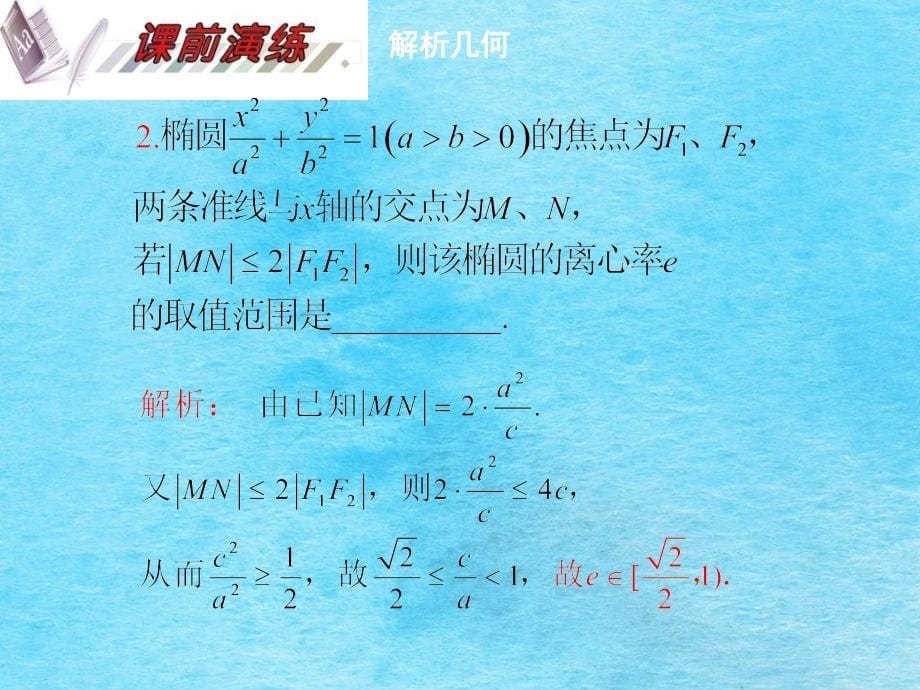 Aa
课前演练
解析几何
2.椭圆x²/a²+y²/b²=1(a>b>0)的焦点为F₁、F₂，
两条准线与x轴的交点为M、N，
若|MN|≤2|F₁F₂|，则该椭圆的离心率e
的取值范围是__________.
解析： 由已知|MN|=2·a²/c.
又|MN|≤2|F₁F₂|，则2·a²/c≤4c，
从而c²/a²≥1/2，故√2/2≤c/a<1，故e∈[√2/2，1).